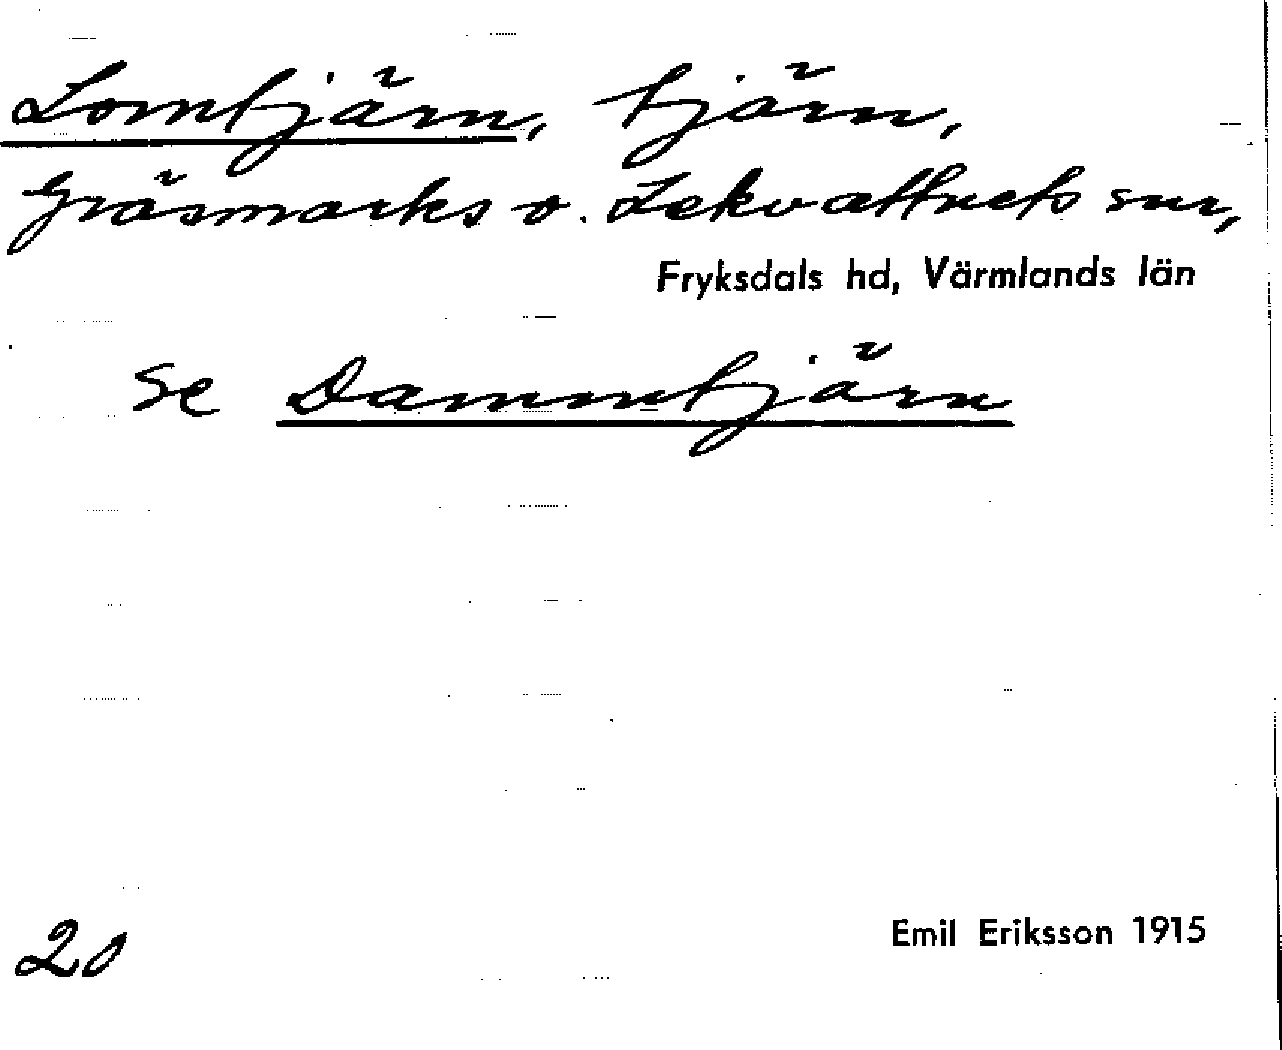 Lomtjärn, tjärn,
Gräsmarks o. Lekvattnets snr,
Fryksdals hd, Värmlands län
se Dammtjärn
20
Emil Eriksson 1915